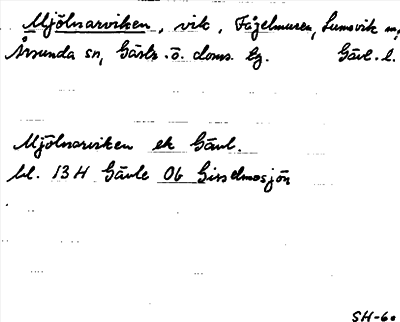 Mjölnarviken, vik, Fågelmuren, Lumsvik m,
Årsunda sn, Gästr. ö. doms. tg. Gävl. l.
Mjölnarviken ek Gävl.
bl. 13 H Gävle 0b Gisselmosjön
SH-60